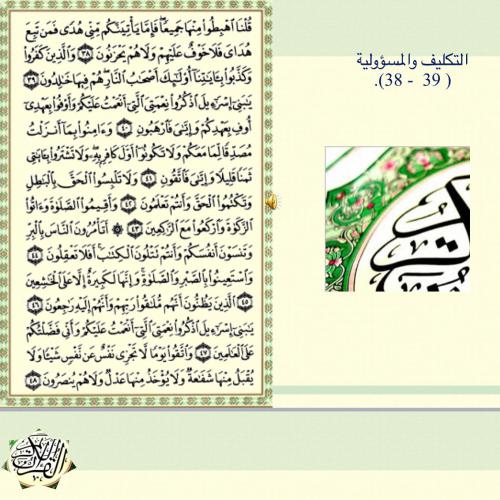 قُلْنَا ٱهْبِطُوا۟ مِنْهَا جَمِيعًا فَإِمَّا يَأْتِيَنَّكُم مِّنِّى هُدًى فَمَن تَبِعَ
هُدَاىَ فَلَا خَوْفٌ عَلَيْهِمْ وَلَا هُمْ يَحْزَنُونَ ٣٨ وَٱلَّذِينَ كَفَرُوا۟
وَكَذَّبُوا۟ بِـَٔايَـٰتِنَآ أُو۟لَـٰٓئِكَ أَصْحَـٰبُ ٱلنَّارِ هُمْ فِيهَا خَـٰلِدُونَ ٣٩
يَـٰبَنِىٓ إِسْرَٰٓءِيلَ ٱذْكُرُوا۟ نِعْمَتِىَ ٱلَّتِىٓ أَنْعَمْتُ عَلَيْكُمْ وَأَوْفُوا۟ بِعَهْدِىٓ
أُوفِ بِعَهْدِكُمْ وَإِيَّـٰىَ فَٱرْهَبُونِ ٤٠ وَءَامِنُوا۟ بِمَآ أَنزَلْتُ
مُصَدِّقًا لِّمَا مَعَكُمْ وَلَا تَكُونُوٓا۟ أَوَّلَ كَافِرٍۭ بِهِۦ وَلَا تَشْتَرُوا۟ بِـَٔايَـٰتِى
ثَمَنًا قَلِيلًا وَإِيَّـٰىَ فَٱتَّقُونِ ٤١ وَلَا تَلْبِسُوا۟ ٱلْحَقَّ بِٱلْبَـٰطِلِ
وَتَكْتُمُوا۟ ٱلْحَقَّ وَأَنتُمْ تَعْلَمُونَ ٤٢ وَأَقِيمُوا۟ ٱلصَّلَوٰةَ وَءَاتُوا۟
ٱلزَّكَوٰةَ وَٱرْكَعُوا۟ مَعَ ٱلرَّٰكِعِينَ ٤٣ ۞ أَتَأْمُرُونَ ٱلنَّاسَ بِٱلْبِرِّ
وَتَنسَوْنَ أَنفُسَكُمْ وَأَنتُمْ تَتْلُونَ ٱلْكِتَـٰبَ أَفَلَا تَعْقِلُونَ ٤٤
وَٱسْتَعِينُوا۟ بِٱلصَّبْرِ وَٱلصَّلَوٰةِ وَإِنَّهَا لَكَبِيرَةٌ إِلَّا عَلَى ٱلْخَـٰشِعِينَ
٤٥ ٱلَّذِينَ يَظُنُّونَ أَنَّهُم مُّلَـٰقُوا۟ رَبِّهِمْ وَأَنَّهُمْ إِلَيْهِ رَٰجِعُونَ ٤٦
يَـٰبَنِىٓ إِسْرَٰٓءِيلَ ٱذْكُرُوا۟ نِعْمَتِىَ ٱلَّتِىٓ أَنْعَمْتُ عَلَيْكُمْ وَأَنِّى فَضَّلْتُكُمْ
عَلَى ٱلْعَـٰلَمِينَ ٤٧ وَٱتَّقُوا۟ يَوْمًا لَّا تَجْزِى نَفْسٌ عَن نَّفْسٍ شَيْـًٔا وَلَا
يُقْبَلُ مِنْهَا شَفَـٰعَةٌ وَلَا يُؤْخَذُ مِنْهَا عَدْلٌ وَلَا هُمْ يُنصَرُونَ ٤٨
التكليف والمسؤولية
( 39 - 38).